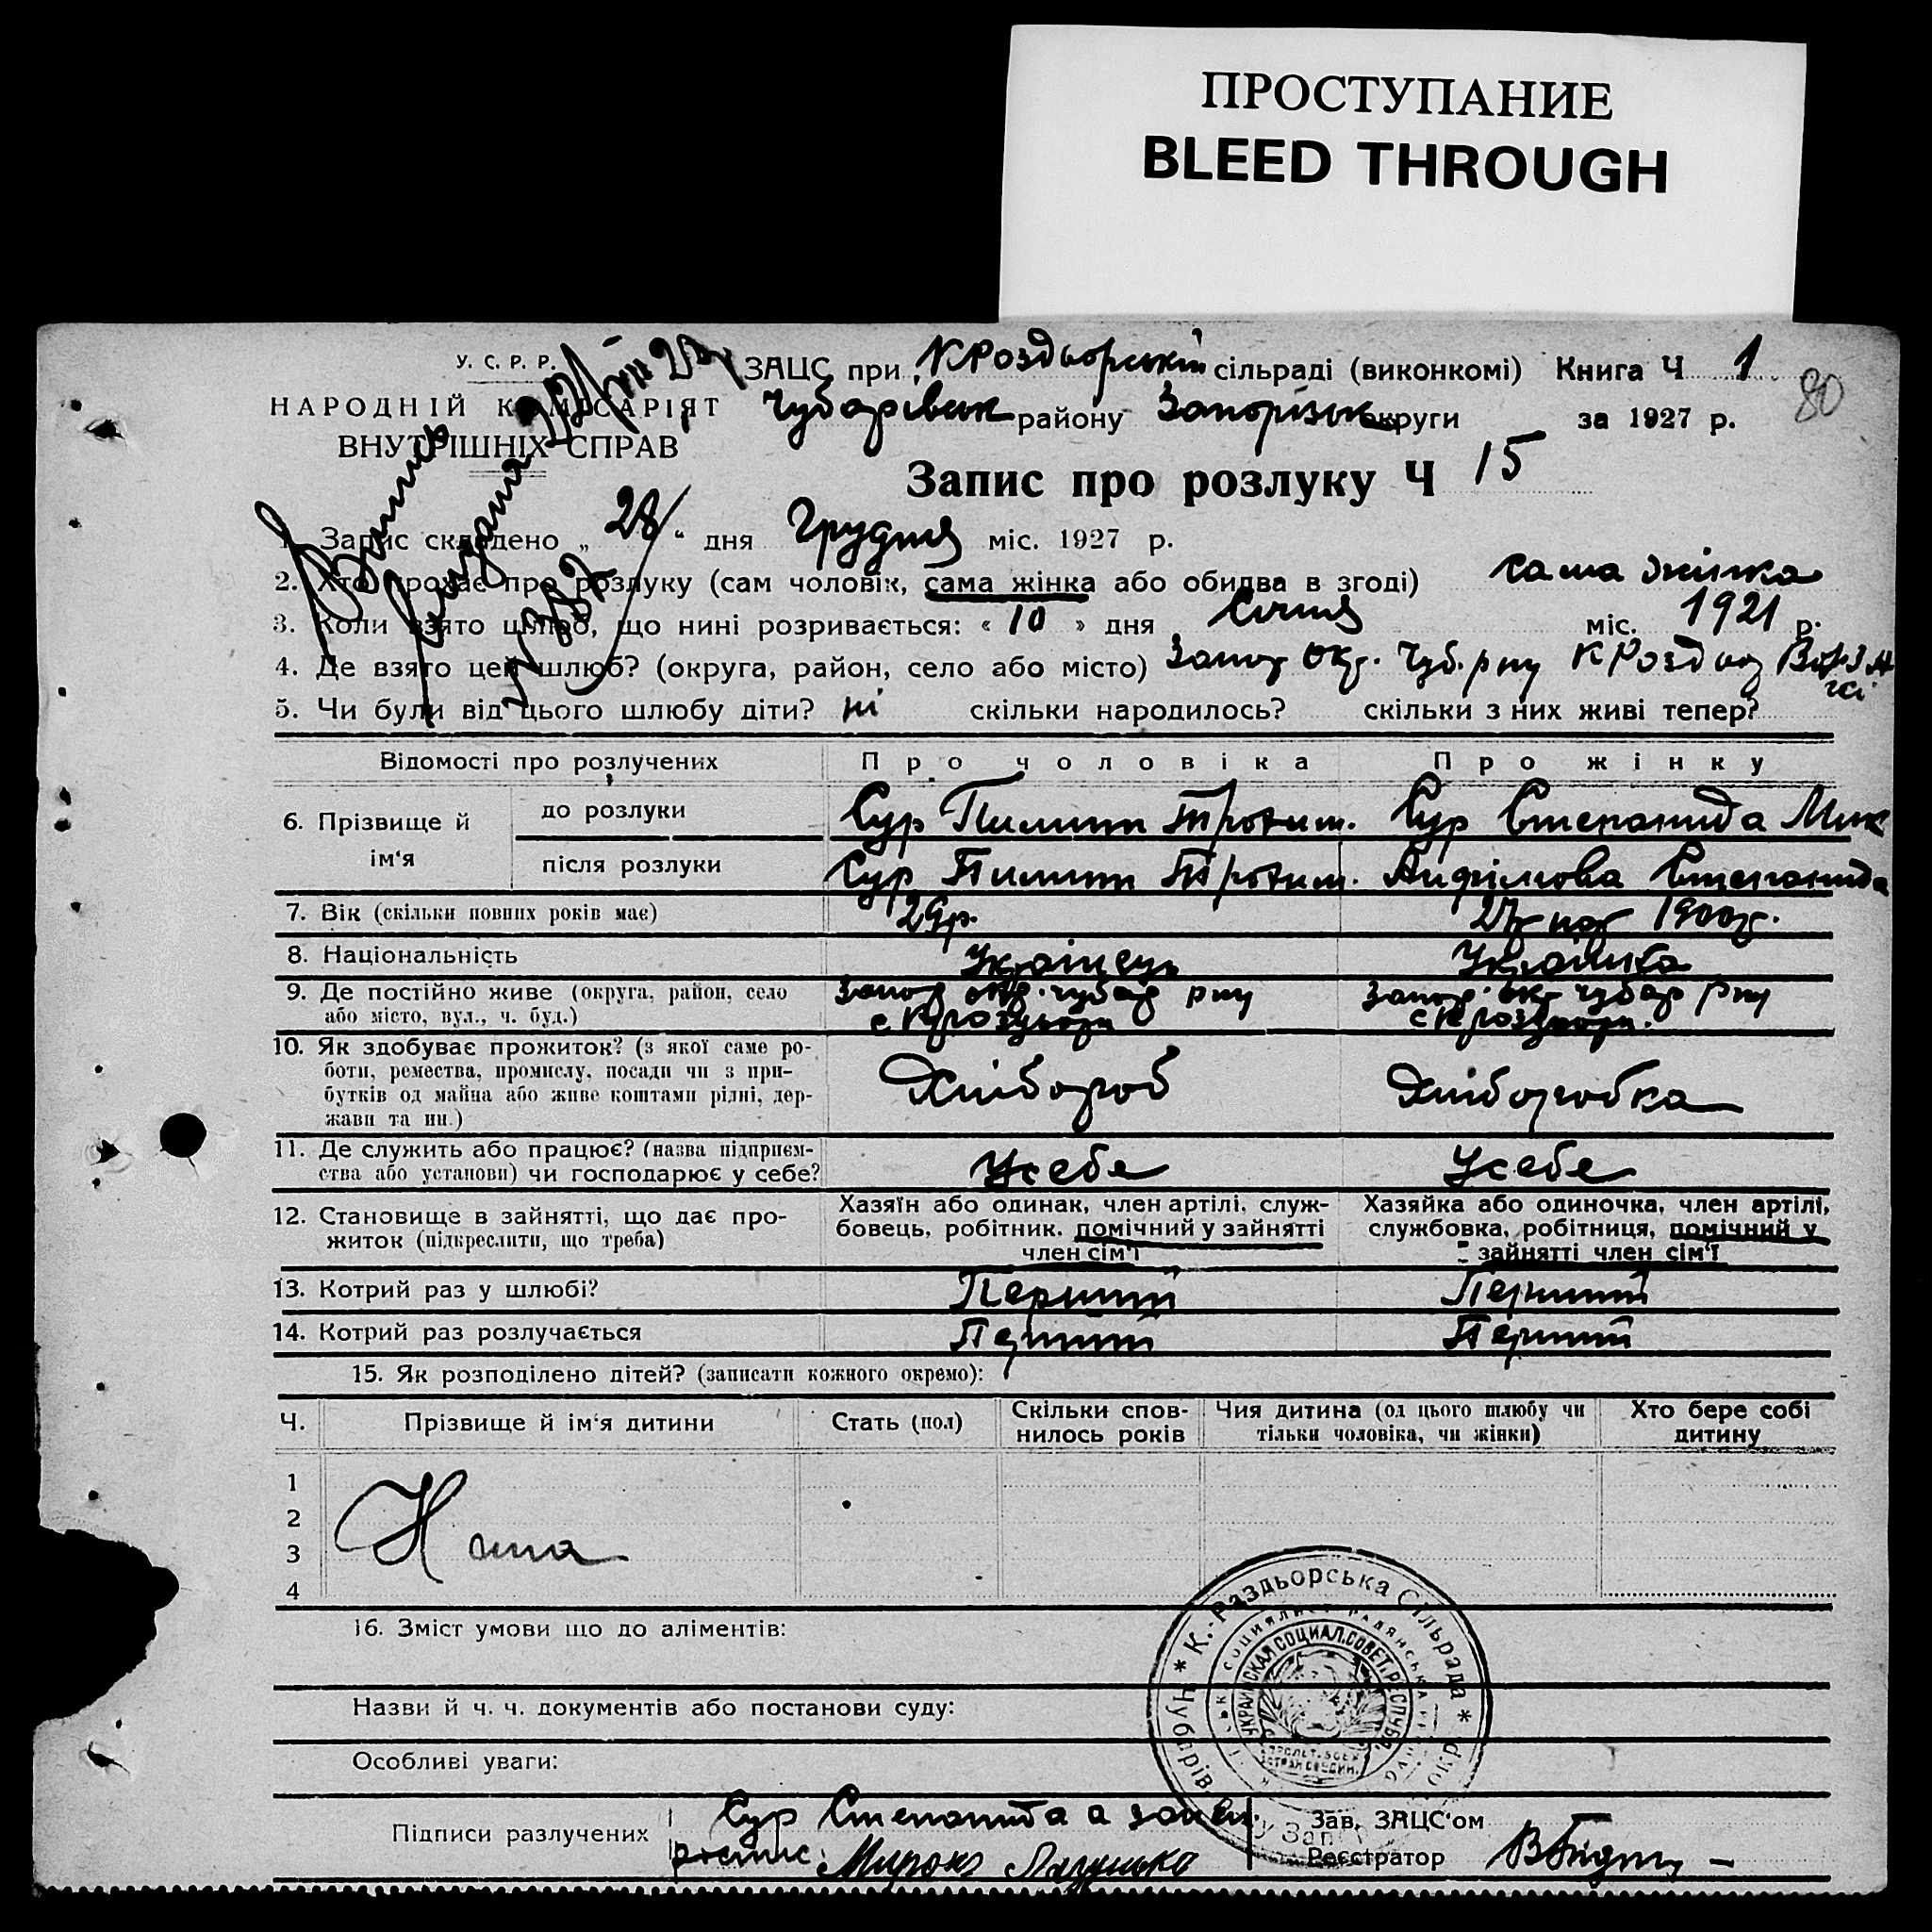 ПРОСТУПАНИЕ
BLEED THROUGH
У. С. Р. Р.
НАРОДНІЙ КОМІСАРІЯТ
ВНУТРІШНІХ СПРАВ
ЗАЦС при КРоздьорській сільраді (виконкомі) Книга Ч 1
80
Чубарівськ району Запорізьк округи за 1927 р.
Запис про розлуку Ч 15
1. Запис складено „ 28 “ дня Грудня міс. 1927 р.
2. Хто прохає про розлуку (сам чоловік, сама жінка або обидва в згоді) сама жінка
3. Коли взято шлюб, що нині розривається: « 10 » дня Січня міс. 1921 р.
4. Де взято цей шлюб? (округа, район, село або місто) Запор окр. Чуб. р ну КРоздьор
5. Чи були від цього шлюбу діти? ні скільки народилось? скільки з них живі тепер?
Відомості про розлучених Про чоловіка Про жінку
6. Прізвище й ім‘я
до розлуки Сур Пилип Трохим. Сур Степанида Мик
після розлуки Сур Пилип Трохим. Анфімова Степанида
7. Вік (скільки повних років має) 29р. 27р 1900р.
8. Національність Українець Українка
9. Де постійно живе (округа, район, село Запор окр. Чубар р ну Запор. окр Чубар р ну
або місто, вул., ч. буд.) с КРоздьори с КРоздьори.
10. Як здобуває прожиток? (з якої саме ро-
боти, ремества, промислу, посади чи з при-
бутків од майна або живе коштами рідні, дер-
жави та ин.) Хлібороб Хліборобка
11. Де служить або працює? (назва підприєм-
ства або установи) чи господарює у себе? У себе У себе
12. Становище в зайнятті, що дає про-
житок (підкреслити, що треба)
Хазяїн або одинак, член артілі, служ-
бовець, робітник, помічний у зайнятті
член сім‘ї
Хазяйка або одиночка, член артілі,
службовка, робітниця, помічний у
зайнятті член сім‘ї
13. Котрий раз у шлюбі? Перший Перший
14. Котрий раз розлучається Перший Перший
15. Як розподілено дітей? (записати кожного окремо):
Ч. Прізвище й ім‘я дитини Стать (пол) Скільки спов-
нилось років Чия дитина (од цього шлюбу чи
тільки чоловіка, чи жінки) Хто бере собі
дитину
1
2
3
4
16. Зміст умови що до аліментів:
К.-Раздьорська Сільрада
УКРАИНСКАЯ СОЦИАЛ.СОВЕТ.РЕСПУБЛ.
Назви й ч. ч. документів або постанови суду:
Особливі уваги:
Підписи разлучених Сур Степанида а за неї
роспис.
Зав. ЗАЦС‘ом
Реєстратор